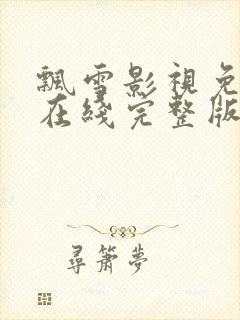 飄雪影視免
在綫完整版
尋簫夢